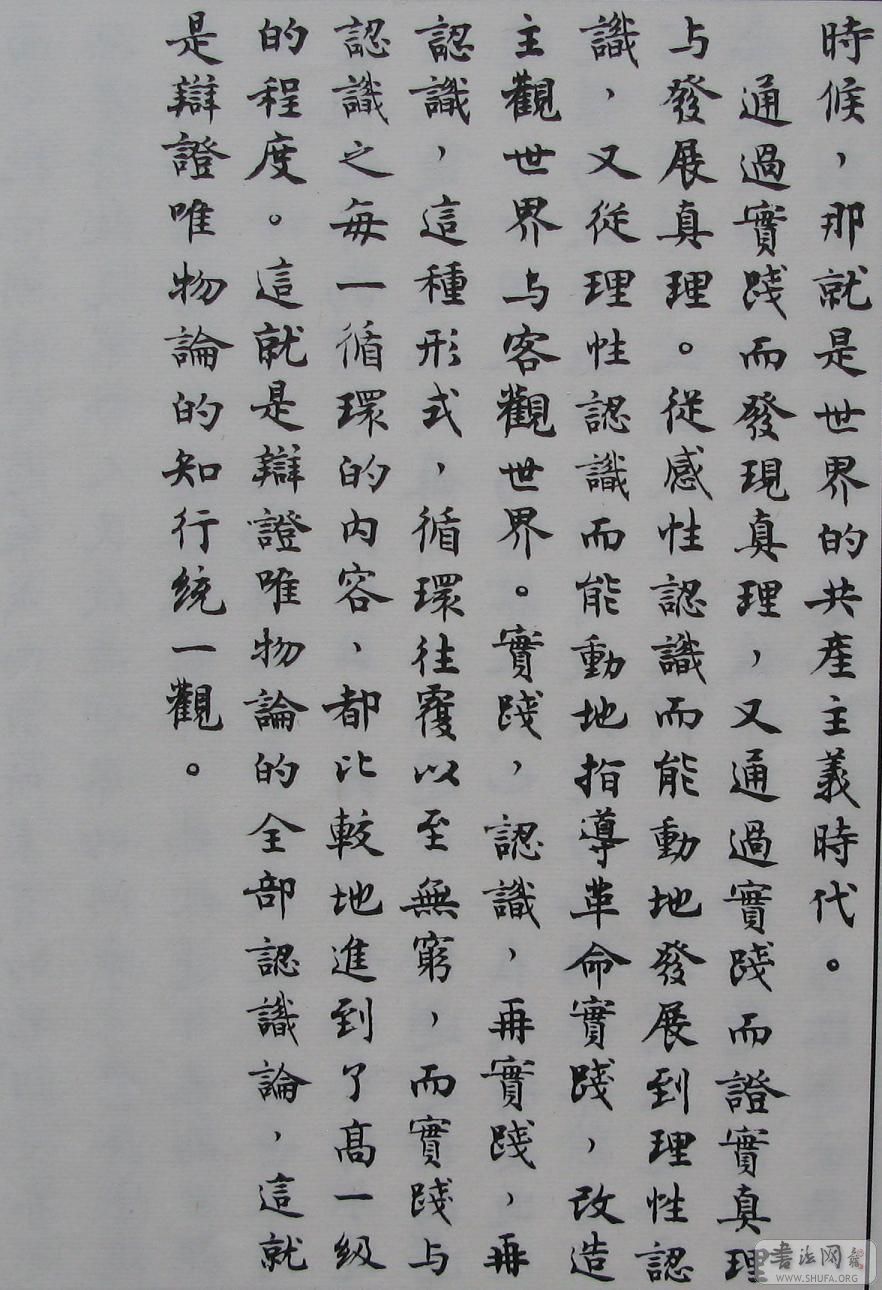 時候，那就是世界的共產主義時代。
通過實踐而發現真理，又通過實踐而證實真理
与發展真理。從感性認識而能動地發展到理性認
識，又從理性認識而能動地指導革命實踐，改造
主觀世界与客觀世界。實踐，認識，再實踐，再
認識，這種形式，循環往覆以至無窮，而實踐与
認識之每一循環的內容、都比較地進到了高一級
的程度。這就是辯證唯物論的全部認識論，這就
是辯證唯物論的知行統一觀。
书法网
WWW.SHUFA.ORG